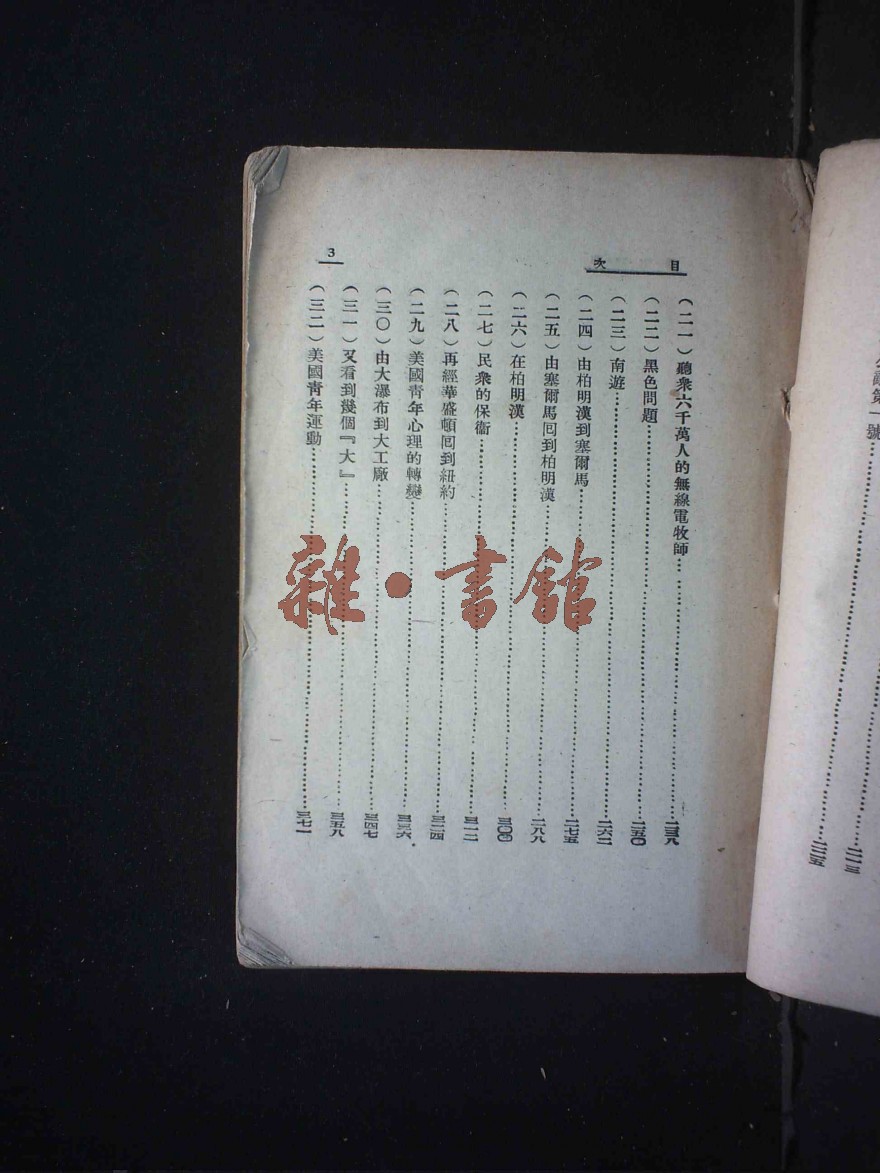 目次
3
(二一)聽衆六千萬人的無線電牧師……二三八
(二二)黑色問題……二五〇
(二三)南遊……二六二
(二四)由柏明漢到塞爾馬……二七五
(二五)由塞爾馬囘到柏明漢……二八八
(二六)在柏明漢……三〇〇
(二七)民衆的保衞……三一二
(二八)再經華盛頓囘到紐約……三二四
(二九)美國靑年心理的轉變……三三六
(三〇)由大瀑布到大工廠……三四七
(三一)又看到幾個『大』……三五八
(三二)美國靑年運動……三七一
雜·書館
第一號